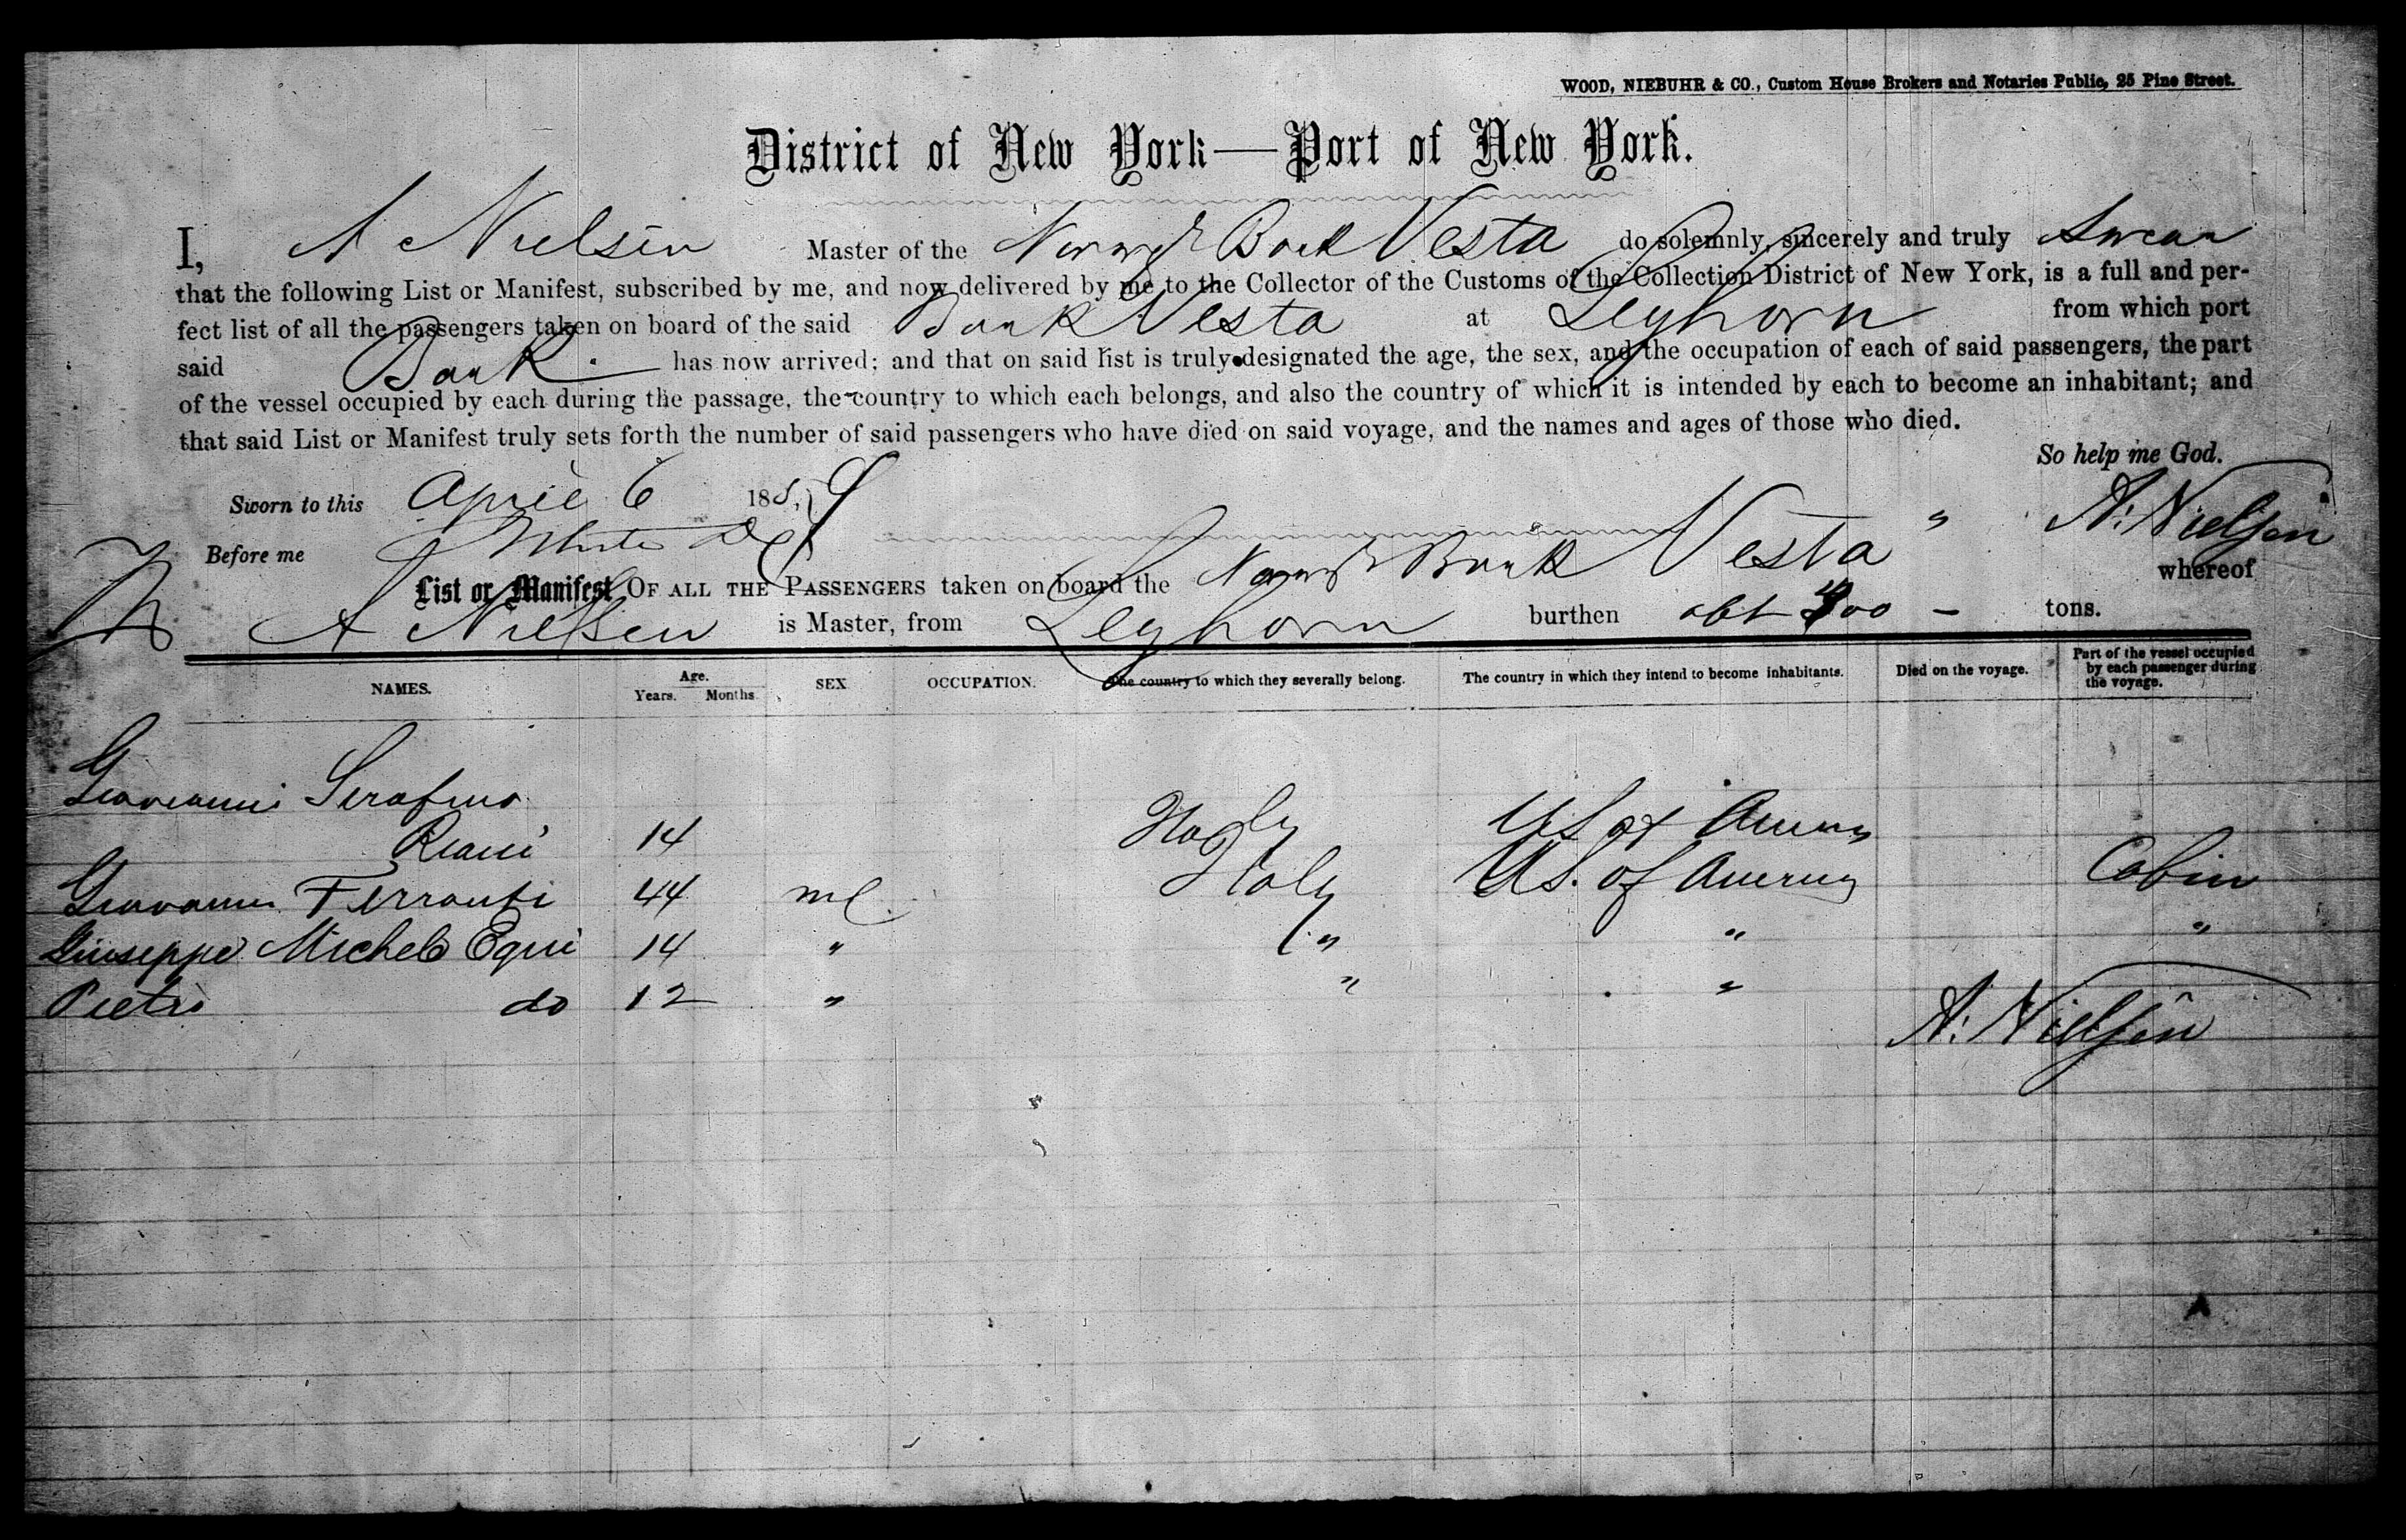 WOOD, NIEBUHR & CO., Custom House Brokers and Notaries Public, 25 Pine Street.
District of New York—Port of New York.
I, A Nielsen Master of the Norwg Bark Vesta do solemnly, sincerely and truly Swear
that the following List or Manifest, subscribed by me, and now delivered by me to the Collector of the Customs of the Collection District of New York, is a full and per-
fect list of all the passengers taken on board of the said Bark Vesta at Leghorn from which port
said Bark has now arrived; and that on said list is truly designated the age, the sex, and the occupation of each of said passengers, the part
of the vessel occupied by each during the passage, the country to which each belongs, and also the country of which it is intended by each to become an inhabitant; and
that said List or Manifest truly sets forth the number of said passengers who have died on said voyage, and the names and ages of those who died.
So help me God.
Sworn to this April 6 18
Before me
A. Nielsen
List or Manifest OF ALL THE PASSENGERS taken on board the Norwg Bark Vesta whereof
A Nielsen is Master, from Leghorn burthen abt 400 — tons.
NAMES. Age. Years. Months. SEX. OCCUPATION. The country to which they severally belong. The country in which they intend to become inhabitants. Died on the voyage. Part of the vessel occupied by each passenger during the voyage.
Giovanni Serafino
14 Italy US of America
Giovanni Ferranti 44 ml Italy US. of America Cabin
Giuseppe Michele Equi 14 " " " "
Pietro do 12 " " "
A. Nielsen